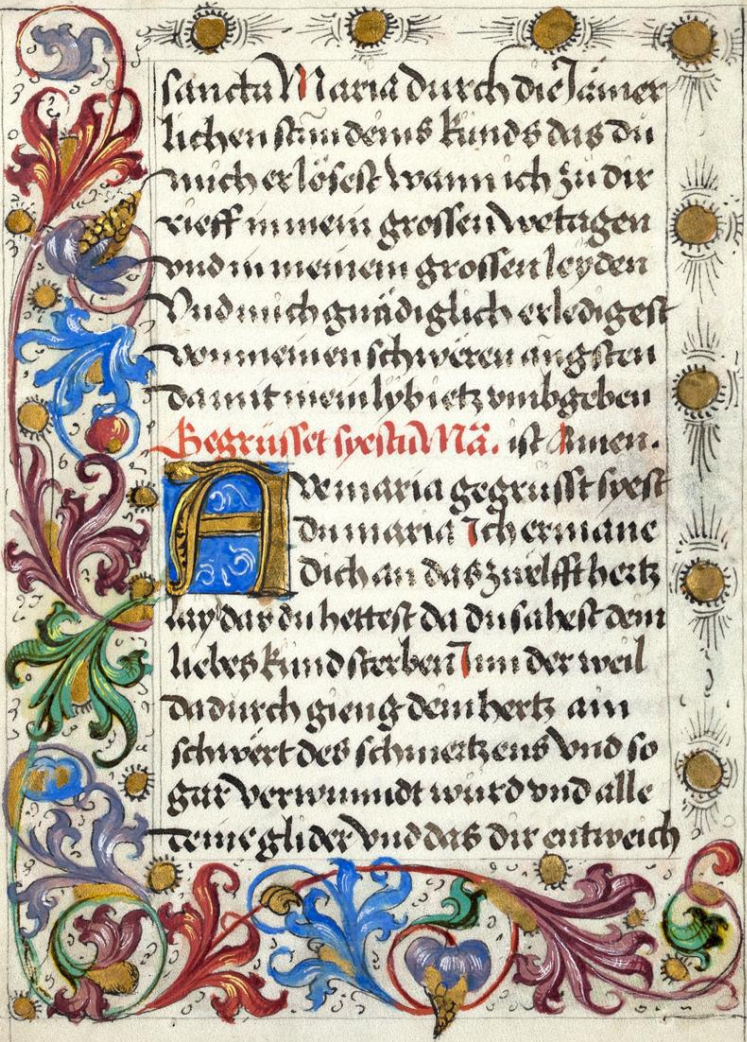 sancta Maria durch die Jamer
lichen stund deins kinds das du
mich erlösest wann ich zu dir
rieff in mein grossen wetagen
vnd in meinem grossen leyden
Vnd mich gnädiglich erledigest
von meinen schweren angsten
damit mein lyb ietz vmbgeben
Gegrüsset syestu Mä. ist Amen.
Ave maria gegrüsst syest
du maria Ich ermane
Dich an das zwelfft hertz
lay dar du hettest da du sahest dein
liebes kind sterben Inn der weil
da durch gieng dein hertz ain
schwert des schmertzens vnd so
gar verwundt würd vnd alle
deine glider vnd das dir entweich